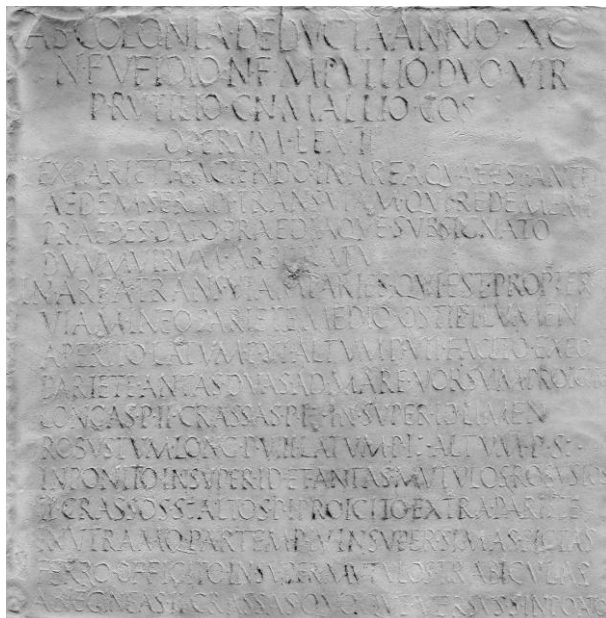 AB·COLONIA·DEDVCTA·ANNO·XC
N·FVFIDIO·N·F·M·PVLLIO·DVO·VIR
P·RVTILIO·CN·MALLIO·COS
OPERVM·LEX·II
LEX·PARIETI·FACIENDO·IN·AREA·QVAE·EST·ANTE
AEDEM·SERAPI·TRANS·VIAM·QVI·REDEMERIT
PRAEDES·DATO·PRAEDIAQVE·SVBSIGNATO
DVVMVIRVM·ARBITRATV
IN·AREA·TRANS·VIAM·PARIES·QVI·EST·PROPTER
VIAM·IN·EO·PARIETE·MEDIO·OSTIEI·LVMEN
APERITO·LATVM·P·VI·ALTVM·P·VII·FACITO·EX·EO
PARIETE·ANTAS·DVAS·AD·MARE·VORSVM·PROICITO
LONGAS·P·II·CRASSAS·P·I·INSVPER·ID·LIMEN
ROBVSTVM·LONG·P·VIII·LATVM·P·I·ALTVM·P·S
INPONITO·INSVPER·ID·ET·ANTAS·MVTVLOS·ROBVSTOS
II·CRASSOS·S·ALTOS·P·I·PROICITO·EXTRA·PARIETE
IN·VTRAMQ·PARTEM·P·IV·INSVPER·SIMAS·PICTAS
FERRO·OFFIGITO·INSVPER·MVTVLOS·TRABICVLAS
ABIEGNEAS·II·CRASSAS·QVOQVE·VERSVS·S·INPONITO